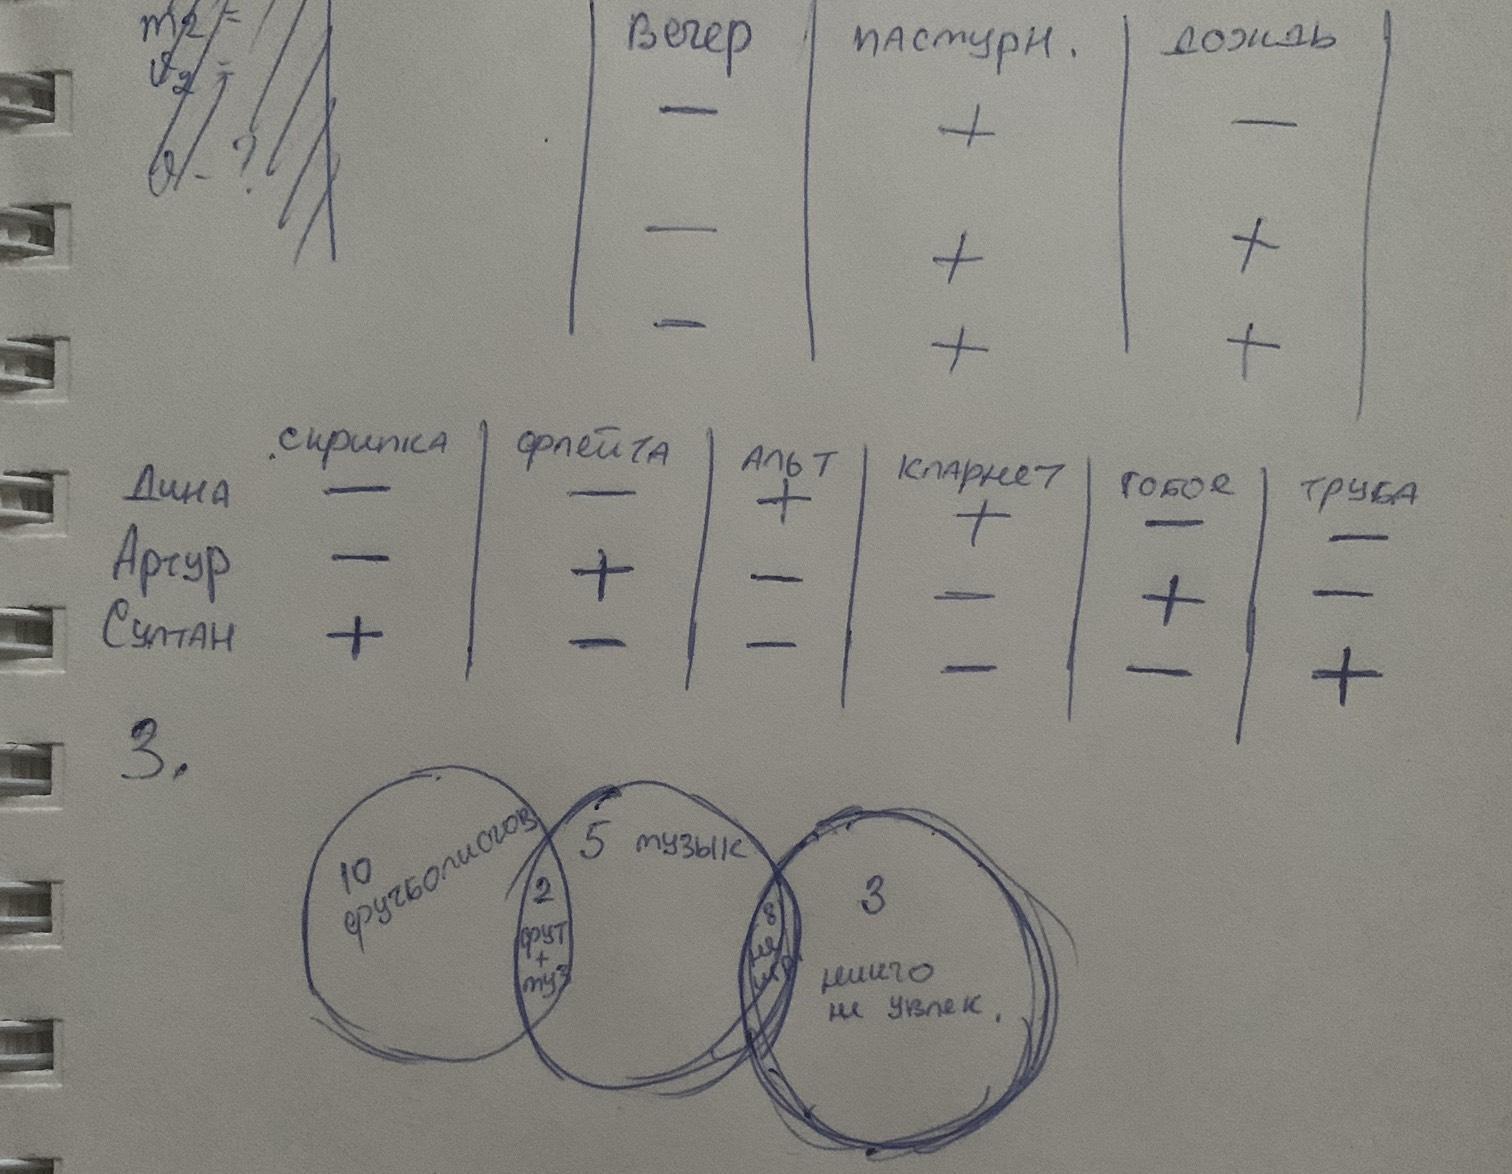 m2 =
v2 =
v - ?
Вечер | пастурн. | дождь
— | + | —
— | + | +
— | + | +
скрипка | флейта | Альт | кларнет | гобоя | труба
Дина — | — | + | + | — | —
Артур — | + | — | — | + | —
Султан + | — | — | — | — | +
3.
10 футболистов
5 музык
2 фут + муз
8 не
3 ничго не увлек.